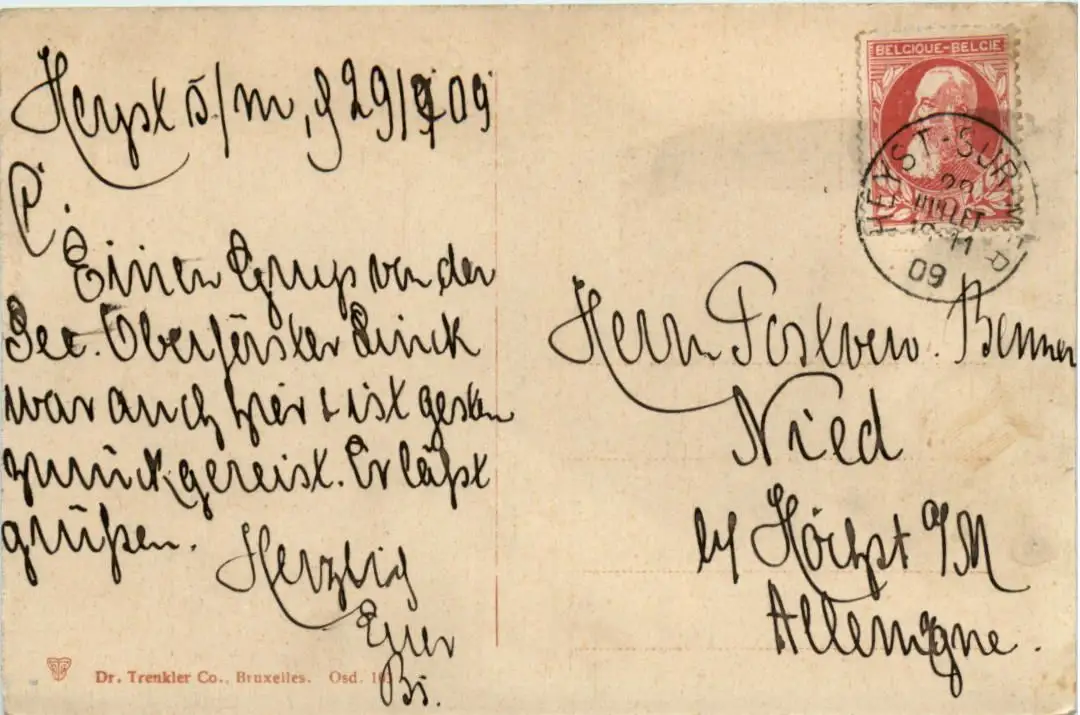 Heyst s/m, d 29/7 09
P.
Einen Gruß von der
See. Oberförster Linck
war auch hier & ist gestern
zurückgereist. Er läßt
grüßen.
Herzlich
Euer
Bs.
BELGIQUE-BELGIE
HEYST-SUR-MER
29
JUILLET
11
09
Herrn Postverw. Benner
Nied
by Höchst a/M
Allemagne.
Dr. Trenkler Co., Bruxelles. Osd.